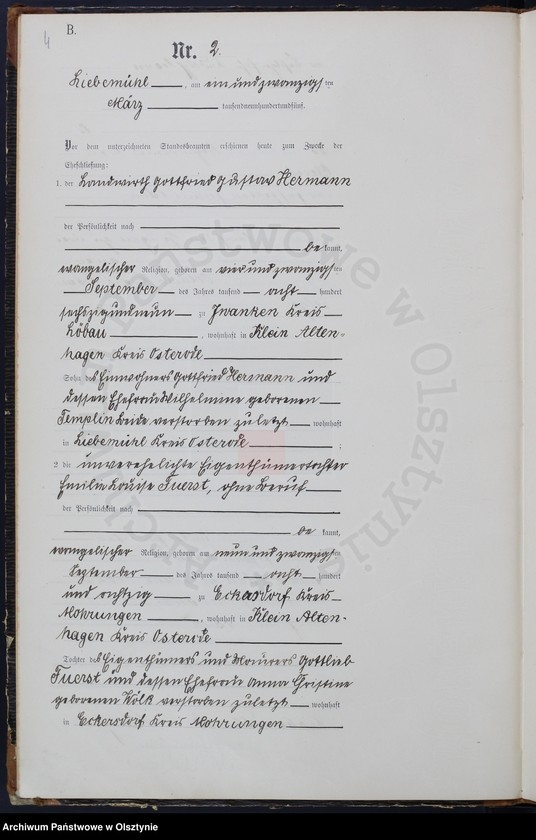 4
B.
Nr. 2.
Liebemühl, am ein und zwanzigsten
März tausendneunhundertundfünf.
Vor dem unterzeichneten Standesbeamten erschienen heute zum Zwecke der
Eheschließung:
1. der Landwirth Gottfried Gustav Hermann
der Persönlichkeit nach
bekannt,
evangelischer Religion, geboren am vier und zwanzigsten
September des Jahres tausend acht hundert
sechszig und neun zu Zwanken Kreis
Löbau, wohnhaft in Klein Alten-
hagen Kreis Osterode
Sohn des Einwohners Gottfried Hermann und
dessen Ehefrau Wilhelmine geborenen
Templin beide verstorben zuletzt wohnhaft
in Liebemühl Kreis Osterode;
2 die unverehelichte Eigenthümertochter
Emilie Louise Fuerst, ohne Beruf
der Persönlichkeit nach
be kannt,
evangelischer Religion, geboren am neun und zwanzigsten
September des Jahres tausend acht hundert
und achtzig zu Eckersdorf Kreis
Mohrungen, wohnhaft in Klein Alten-
hagen Kreis Osterode
Tochter des Eigenthümers und Maurers Gottlieb
Fuerst und dessen Ehefrau Anna Christine
geborenen Kölk verstorben zuletzt wohnhaft
in Eckersdorf Kreis Mohrungen
Archiwum Państwowe w Olsztynie
Archiwum Państwowe w Olsztynie